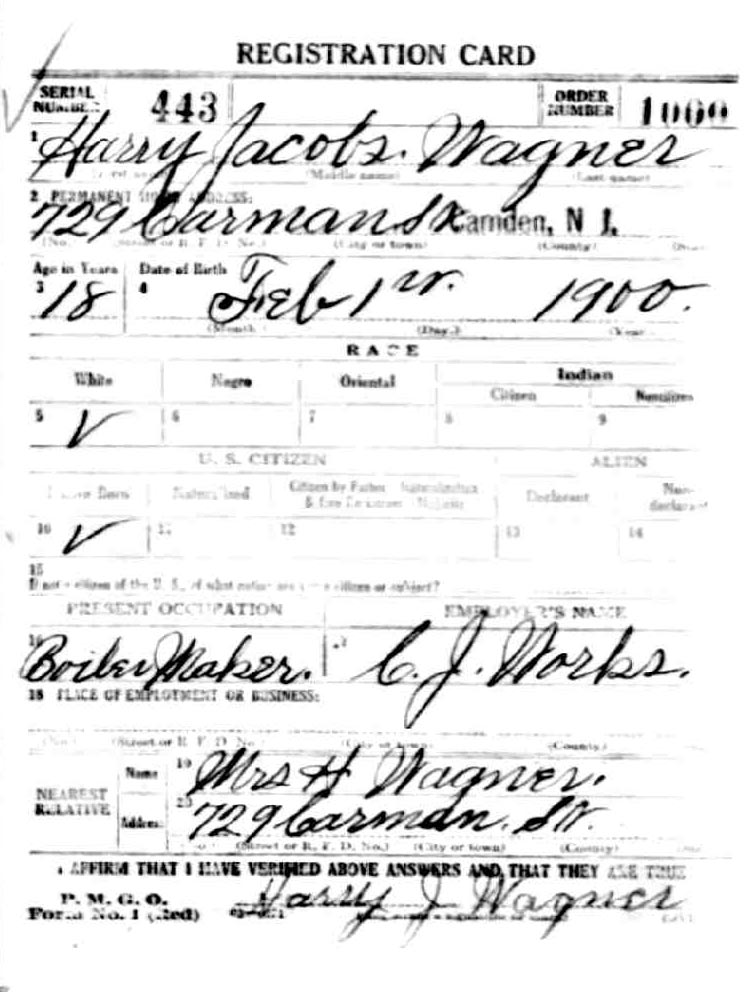 REGISTRATION CARD
SERIAL NUMBER 443 ORDER NUMBER 1000
1 Harry Jacobs. Wagner
(Middle name) (Last name)
2 PERMANENT HOME ADDRESS:
729 Carman St Camden, N J.
(No.) (Street or R. F. D. No.) (City or town) (County)
Age in Years Date of Birth
3 18 4 Feb 1st. 1900.
(Month) (Day.) (Year
RACE
White Negro Oriental Indian
Citizen Noncitizen
5 V 6 7 8 9
U. S. CITIZEN ALIEN
Native Born Naturalized Citizen by Father's Naturalization Declarant Non-declarant
10 V 11 12 13 14
15
If not a citizen of the U. S., of what nation are you a citizen or subject?
PRESENT OCCUPATION EMPLOYER'S NAME
16 Boiler Maker. 17 C. J. Works.
18 PLACE OF EMPLOYMENT OR BUSINESS:
(No.) (Street or R. F. D. No.) (City or town) (County)
NEAREST RELATIVE Name 19 Mrs H Wagner.
Address 20 729 Carman. St.
(No.) (Street or R. F. D. No.) (City or town) (County)
I AFFIRM THAT I HAVE VERIFIED ABOVE ANSWERS AND THAT THEY ARE TRUE
P. M. G. O.
Form No. 1 (Red) Harry J Wagner